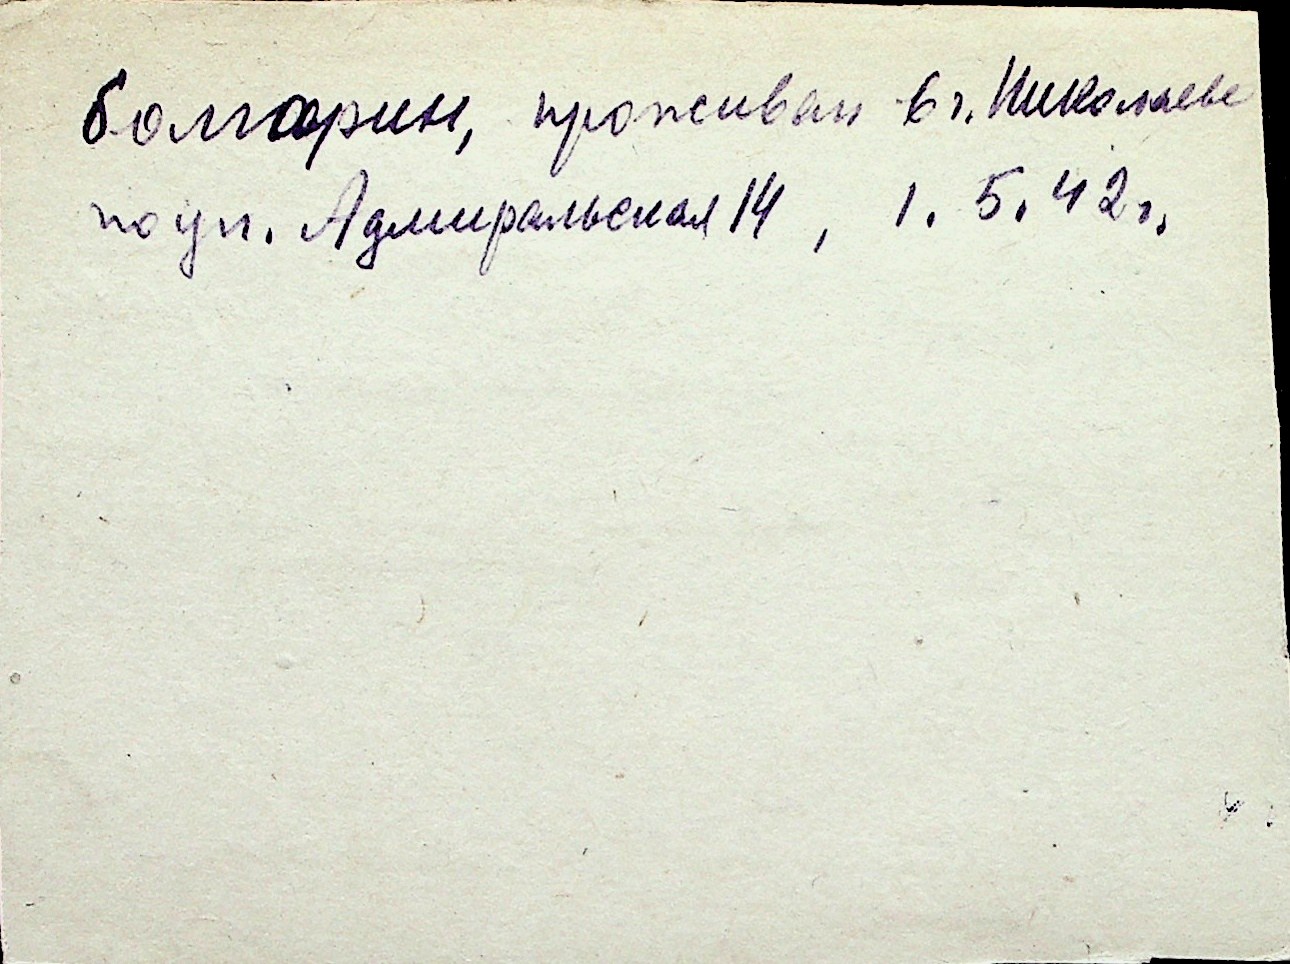 болгарин, проживал в г. Николаеве
по ул. Адмиральская 14, 1. 5. 42 г.